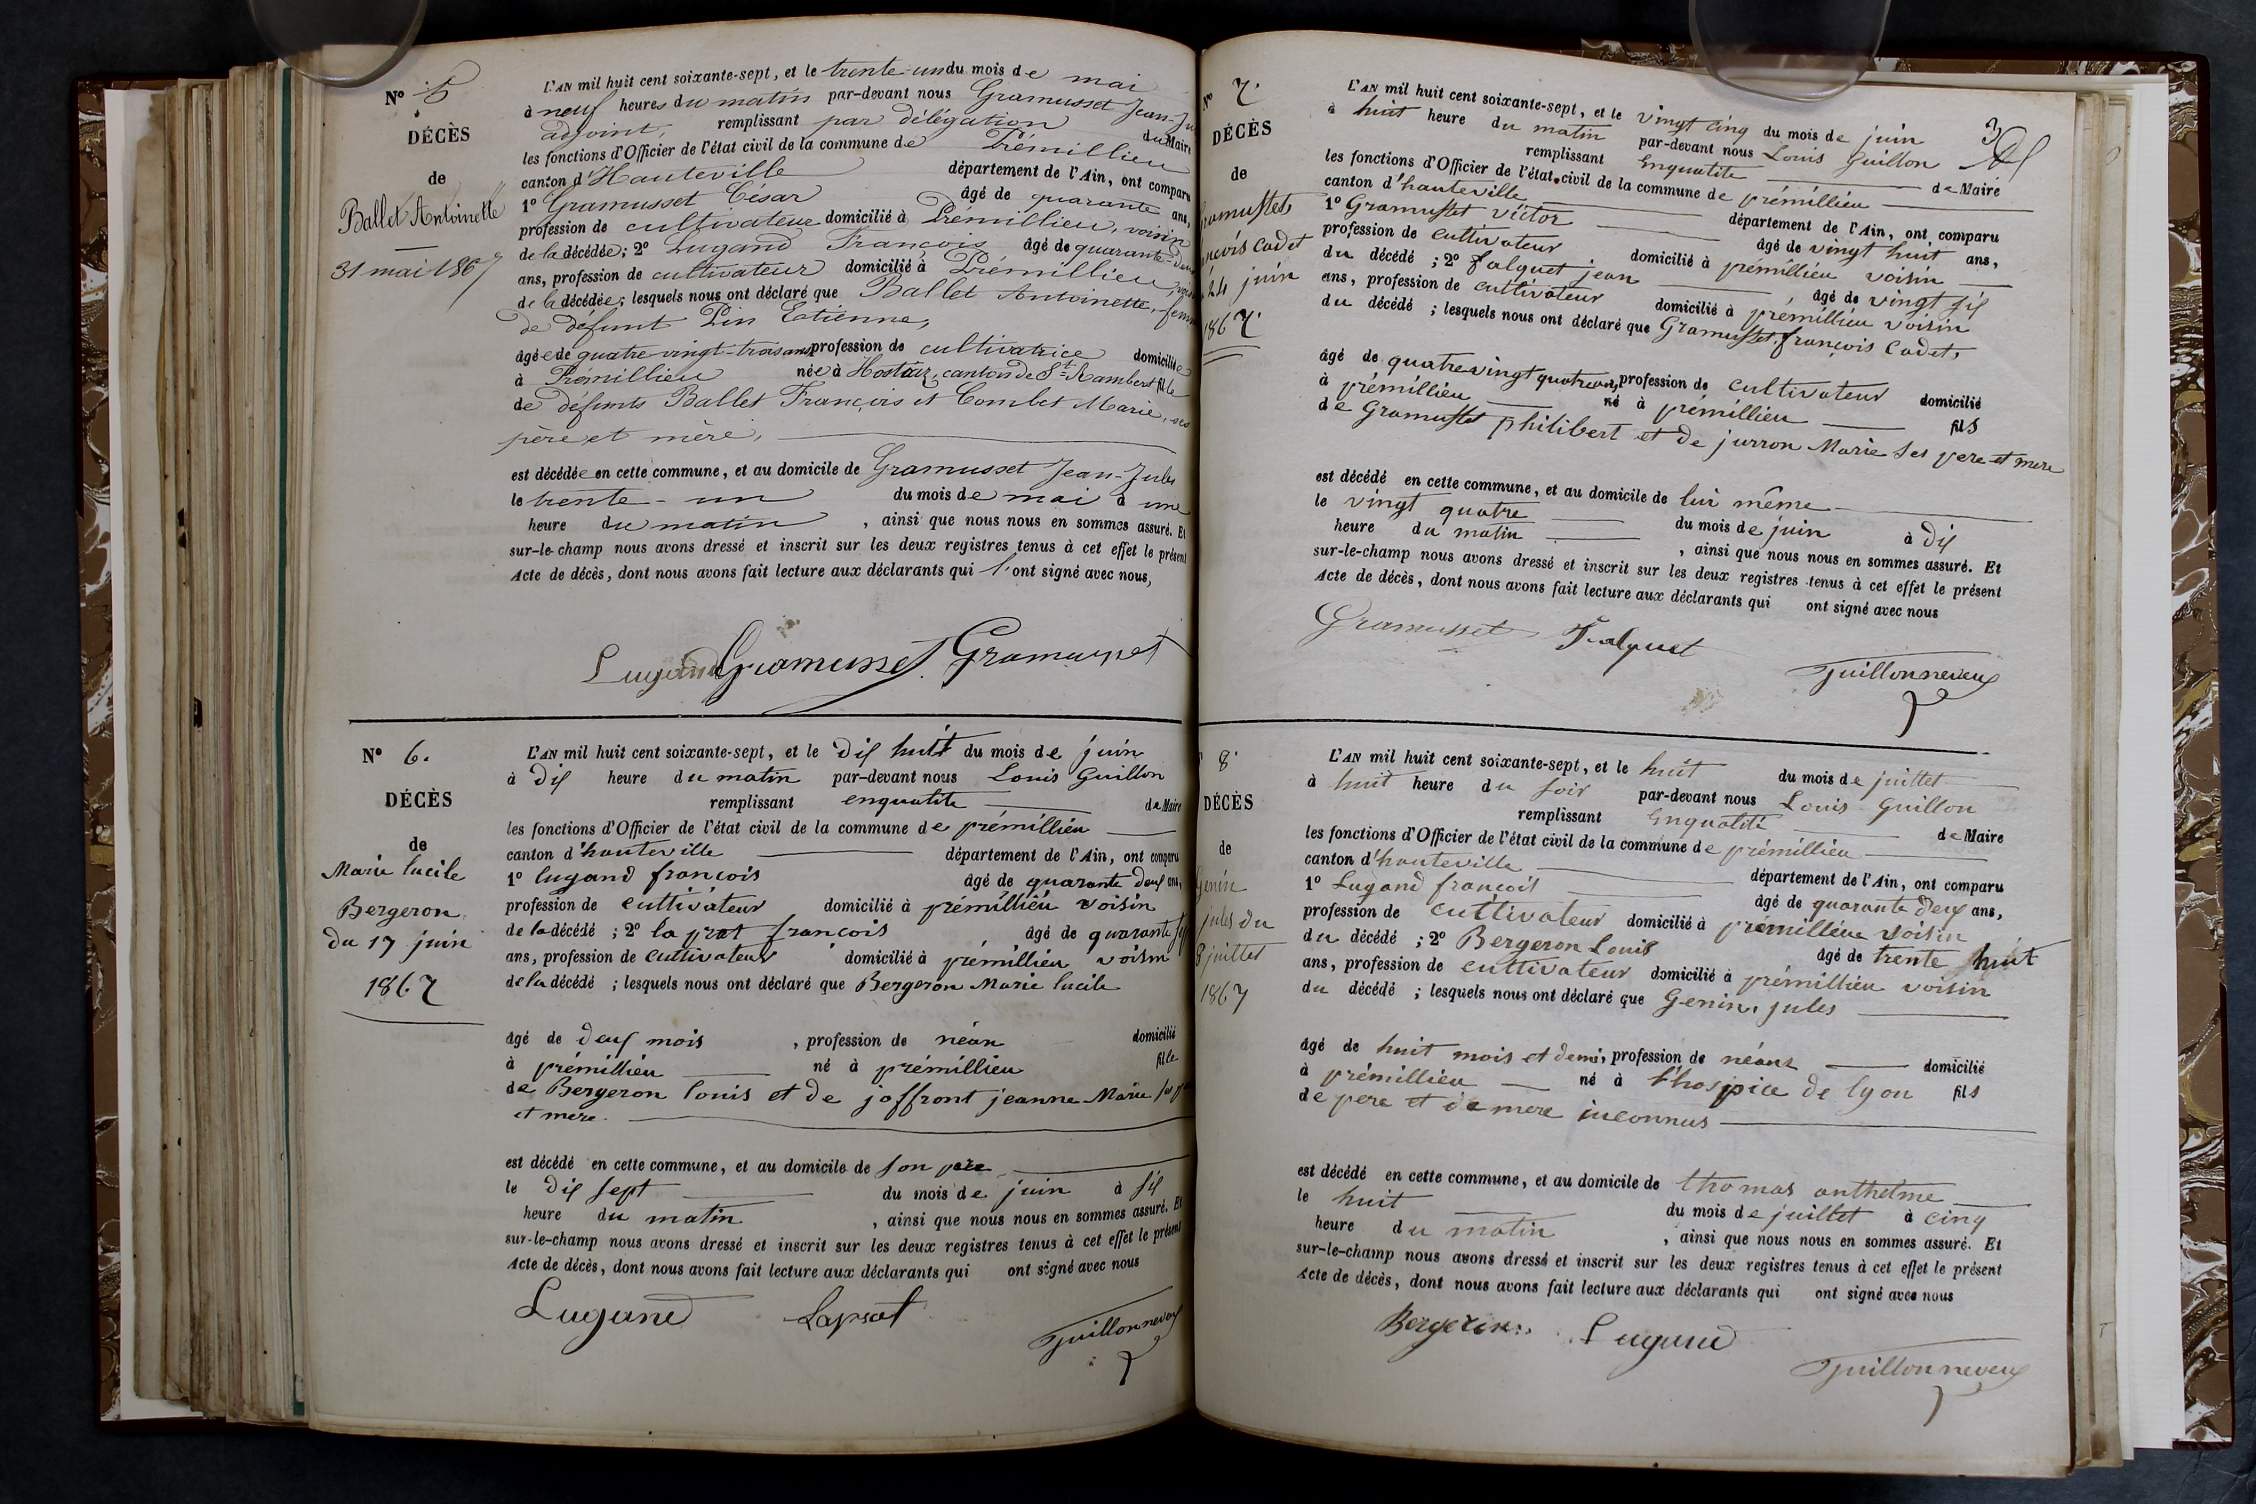 Nº 5
DÉCÈS
de
Ballet Antoinette
31 mai 1867
L'AN mil huit cent soixante-sept, et le trente-un du mois de mai
à neuf heures du matin par-devant nous Gramusset Jean-Ju
adjoint, remplissant par délégation du Maire
les fonctions d'Officier de l'état civil de la commune de Prémillieu
canton d'Hauteville département de l'Ain, ont comparu
1º Gramusset César âgé de quarante ans,
profession de cultivateur domicilié à Prémillieu, voisin
de la décédée; 2º Lugand François âgé de quarante-deux
ans, profession de cultivateur domicilié à Prémillieu, voisin
de la décédée; lesquels nous ont déclaré que Ballet Antoinette, femme
de défunt Pin Etienne,
âgée de quatre vingt-trois ans profession de cultivatrice domiciliée
à Prémillieu née à Hostiaz, canton de St Rambert fille
de défunts Ballet François et Combet Marie, ses
père et mère,
est décédée en cette commune, et au domicile de Gramusset Jean-Jules
le trente-un du mois de mai à une
heure du matin, ainsi que nous nous en sommes assuré. Et
sur-le-champ nous avons dressé et inscrit sur les deux registres tenus à cet effet le présent
Acte de décès, dont nous avons fait lecture aux déclarants qui l'ont signé avec nous,
Lugand Gramusset Gramusset
Nº 6.
DÉCÈS
de
Marie lucile
Bergeron
du 17 juin
1867
L'AN mil huit cent soixante-sept, et le dix huit du mois de juin
à dix heure du matin par-devant nous Louis Guillon
remplissant enqualite de Maire
les fonctions d'Officier de l'état civil de la commune de prémillieu
canton d'hauteville département de l'Ain, ont comparu
1º lugand francois âgé de quarante deux ans,
profession de cultivateur domicilié à prémillieu voisin
de la décédé ; 2º laprat francois âgé de quarante six
ans, profession de cultivateur domicilié à prémillieu voisin
de la décédé ; lesquels nous ont déclaré que Bergeron Marie lucile
âgé de deux mois, profession de néan domicilié
à prémillieu né à prémillieu fille
de Bergeron louis et de joffront jeanne Marie ses
et mere.
est décédé en cette commune, et au domicile de son père
le dix sept du mois de juin à six
heure du matin, ainsi que nous nous en sommes assuré. Et
sur-le-champ nous avons dressé et inscrit sur les deux registres tenus à cet effet le présent
Acte de décès, dont nous avons fait lecture aux déclarants qui ont signé avec nous
Lugand Laprat Guillon neveux
Nº 7.
DÉCÈS
de
Gramusset
ancois Cadet
24 juin
1867.
L'AN mil huit cent soixante-sept, et le vingt cinq du mois de juin
à huit heure du matin par-devant nous Louis Guillon
remplissant Enqualite de Maire
les fonctions d'Officier de l'état civil de la commune de prémillieu
canton d'hauteville département de l'Ain, ont comparu
1º Gramusset victor âgé de vingt huit ans,
profession de cultivateur domicilié à prémillieu voisin
du décédé ; 2º falquet jean âgé de vingt six
ans, profession de cultivateur domicilié à prémillieu voisin
du décédé ; lesquels nous ont déclaré que Gramusset. françois Cadet,
âgé de quatrevingt quatre ans, profession de cultivateur domicilié
à prémillieu né à prémillieu fils
de Gramusset philibert et de jurron Marie ses pere et mere
est décédé en cette commune, et au domicile de lui même
le vingt quatre du mois de juin à dix
heure du matin, ainsi que nous nous en sommes assuré. Et
sur-le-champ nous avons dressé et inscrit sur les deux registres tenus à cet effet le présent
Acte de décès, dont nous avons fait lecture aux déclarants qui ont signé avec nous
Gramusset Falquet
Guillon neveux
8.
DÉCÈS
de
Genin
jules du
8 juillet
1867
L'AN mil huit cent soixante-sept, et le huit du mois de juillet
à huit heure du soir par-devant nous Louis Guillon
remplissant Enqualité de Maire
les fonctions d'Officier de l'état civil de la commune de prémillieu
canton d'hauteville département de l'Ain, ont comparu
1º Lugand francois âgé de quarante deux ans,
profession de cultivateur domicilié à prémillieu voisin
du décédé ; 2º Bergeron Louis âgé de trente huit
ans, profession de cultivateur domicilié à prémillieu voisin
du décédé ; lesquels nous ont déclaré que Genin, jules
âgé de huit mois et demi, profession de néant domicilié
à prémillieu né à l'hospice de lyon fils
de pere et de mere inconnus
est décédé en cette commune, et au domicile de thomas anthelme
le huit du mois de juillet à cinq
heure du matin, ainsi que nous nous en sommes assuré. Et
sur-le-champ nous avons dressé et inscrit sur les deux registres tenus à cet effet le présent
Acte de décès, dont nous avons fait lecture aux déclarants qui ont signé avec nous
Bergeron Lugand
Guillon neveux